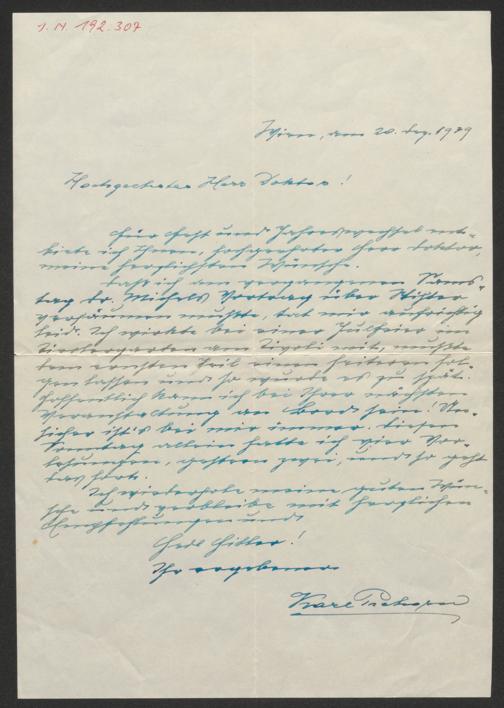 J. N. 192.307
Wien, am 20. Dez. 1939
Hochgeehrter Herr Doktor!
Für Fest und Jahreswechsel ent-
biete ich Ihnen, hochgeehrter Herr Doktor,
meine herzlichsten Wünsche.
Daß ich am vergangenen Sams-
tag Dr. Michels Vortrag über
versäumen mußte, tut mir aufrichtig
leid. Ich wirkte bei einer Julfeier im
am Tivoli mit, mußte
dem ernsten Teil einen heiteren fol-
gen lassen und so wurde es zu spät.
Hoffentlich kann ich bei Ihrer nächsten
Veranstaltung an Bord sein! Un-
sicher ist's bei mir immer. Diesen
Sonntag allein hatte ich vier Vor-
lesungen, gestern zwei, und so geht
das fort.
Ich wiederhole meine guten Wün-
sche und verbleibe mit herzlichen
Empfehlungen und
Heil Hitler!
Ihr ergebener
Karl